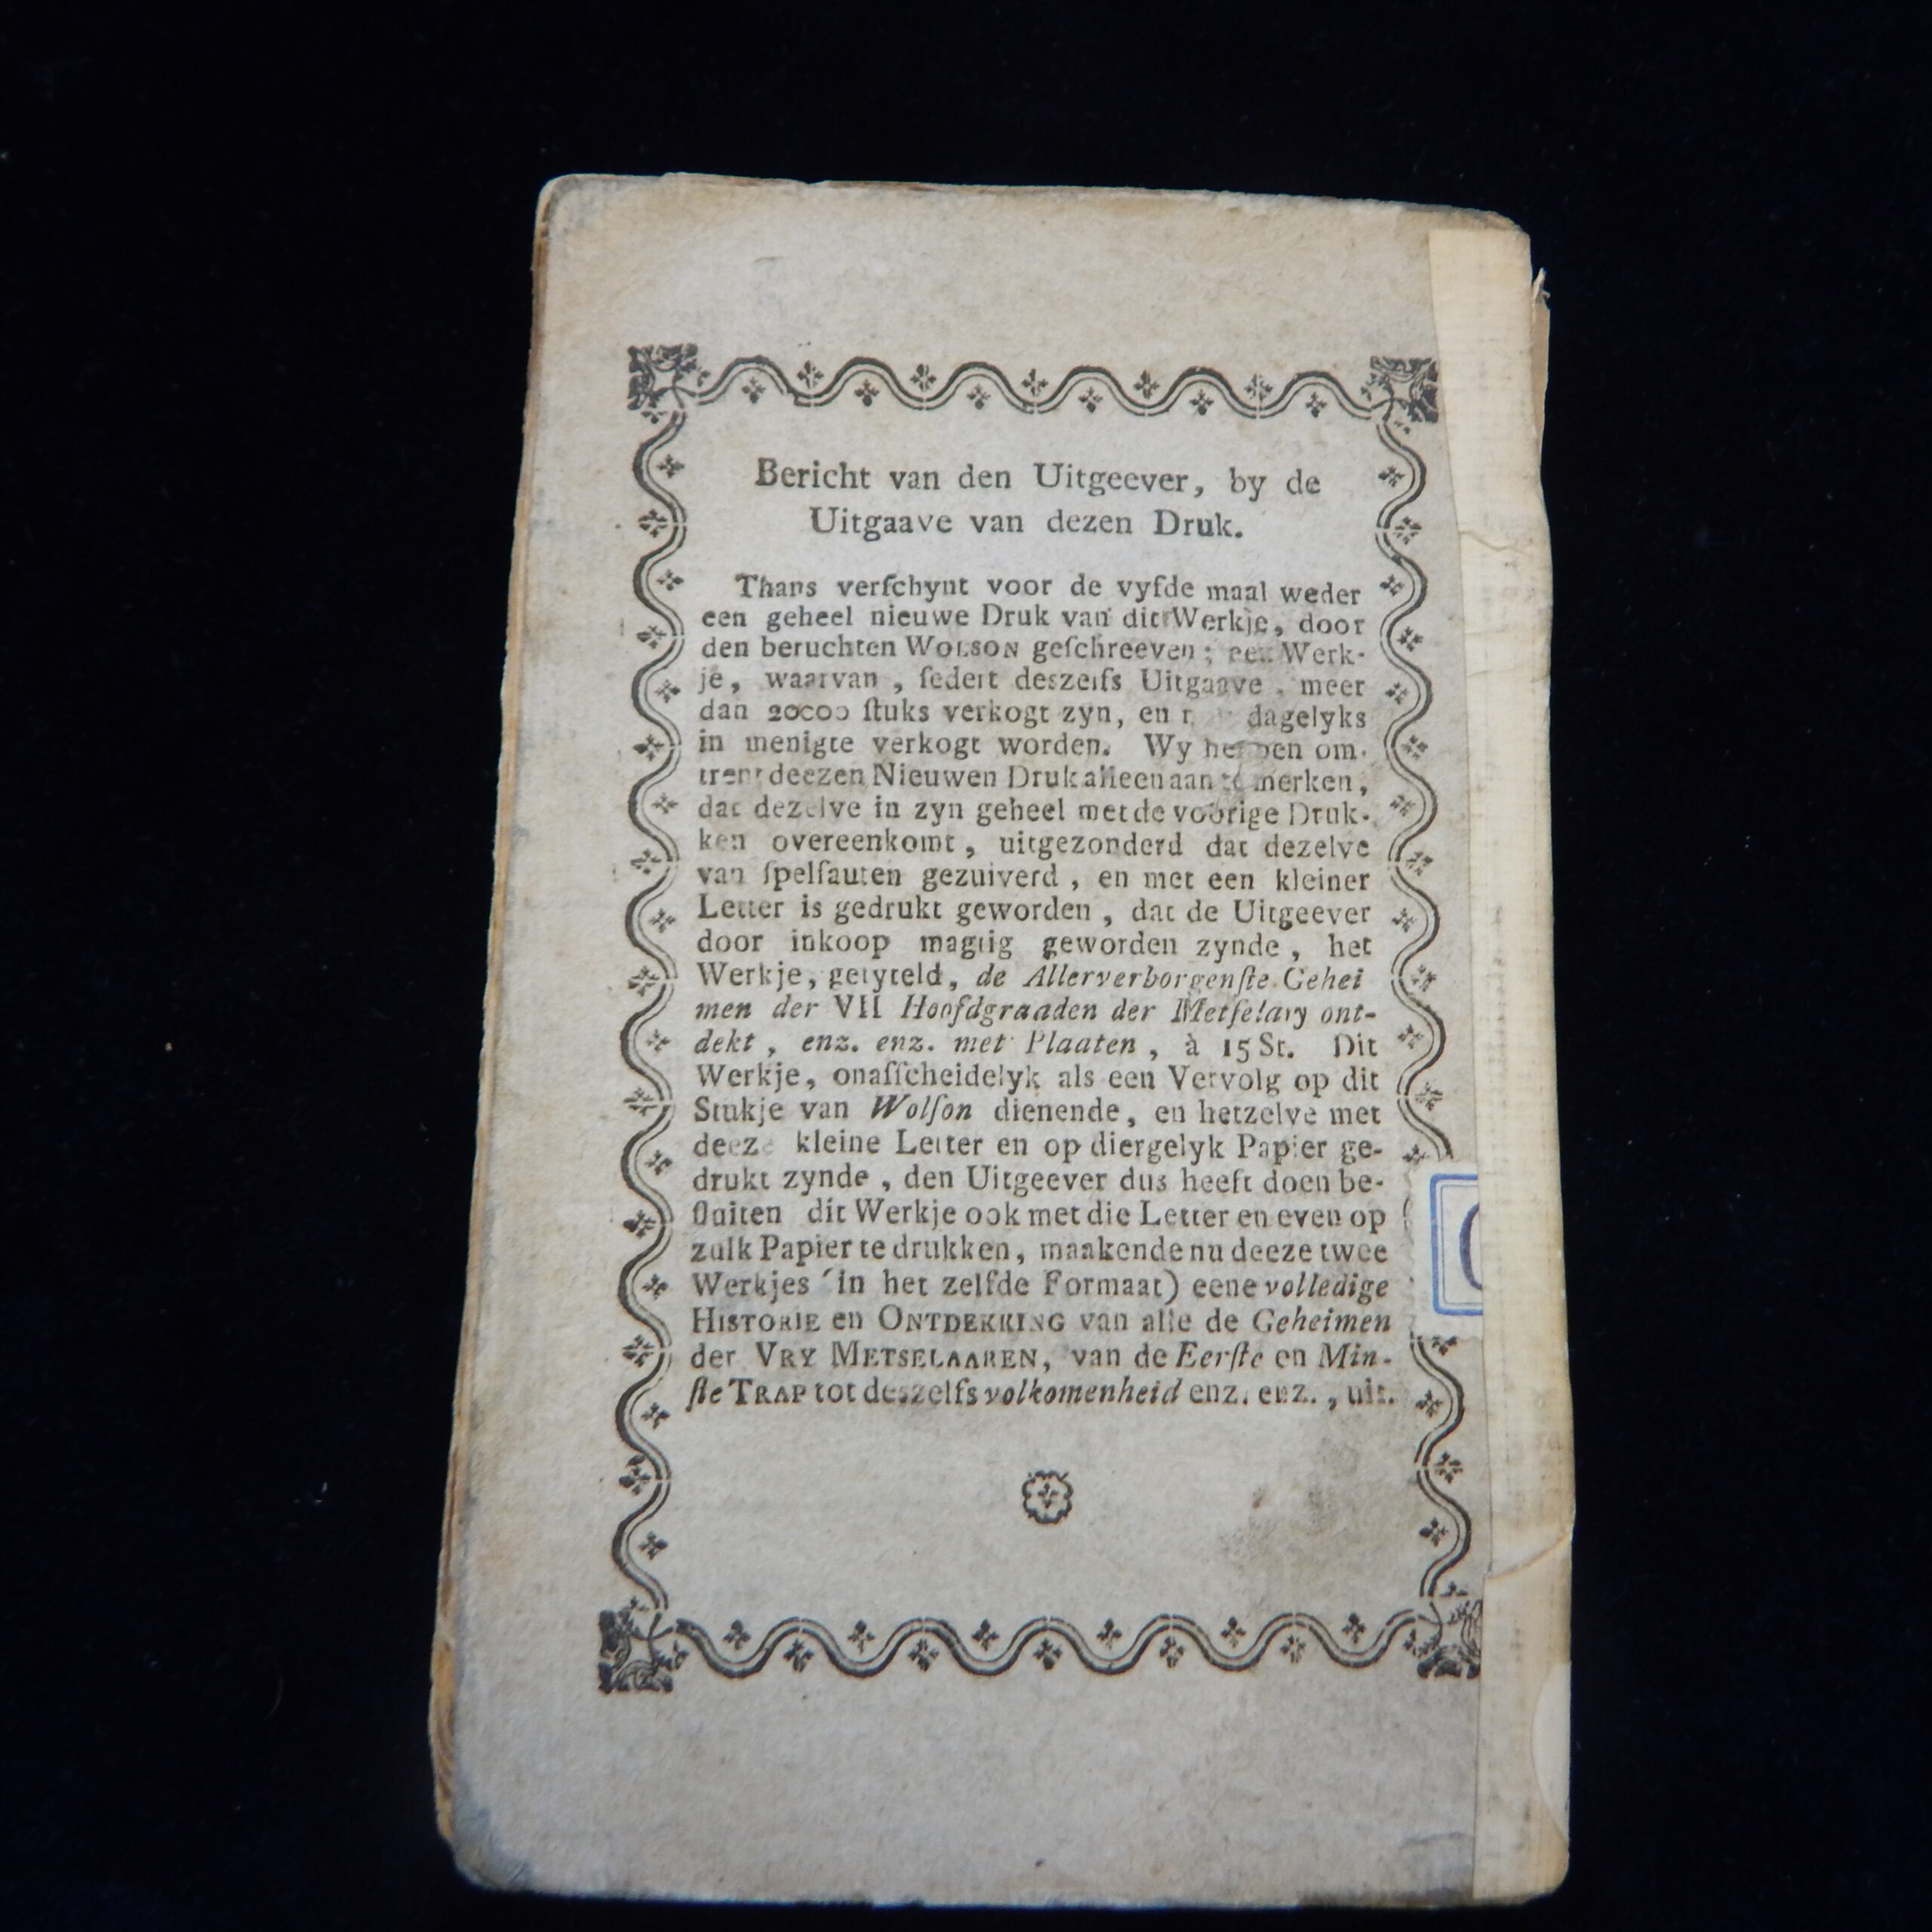 Bericht van den Uitgeever, by de
Uitgaave van dezen Druk.
Thans verſchynt voor de vyfde maal weder
een geheel nieuwe Druk van dit Werkje, door
den beruchten WOLSON geſchreeven; een Werk-
je, waarvan, ſedert deszelfs Uitgaave, meer
dan 20000 ſtuks verkogt zyn, en dagelyks
in menigte verkogt worden. Wy hebben om-
trent deezen Nieuwen Druk alleen aan te merken,
dat dezelve in zyn geheel met de voorige Druk-
ken overeenkomt, uitgezonderd dat dezelve
van ſpelfauten gezuiverd, en met een kleiner
Letter is gedrukt geworden, dat de Uitgeever
door inkoop magtig geworden zynde, het
Werkje, getyteld, de Allerverborgenſte Gehei
men der VII Hoofdgraaden der Metſelary ont-
dekt, enz. enz. met Plaaten, à 15 St. Dit
Werkje, onafſcheidelyk als een Vervolg op dit
Stukje van Wolſon dienende, en hetzelve met
deeze kleine Letter en op diergelyk Papier ge-
drukt zynde, den Uitgeever dus heeft doen be-
ſluiten dit Werkje ook met die Letter en even op
zulk Papier te drukken, maakende nu deeze twee
Werkjes (in het zelfde Formaat) eene volledige
HISTORIE en ONTDEKKING van alle de Geheimen
der VRY METSELAAREN, van de Eerſte en Min-
ſte TRAP tot deszelfs volkomenheid enz. enz., uit.